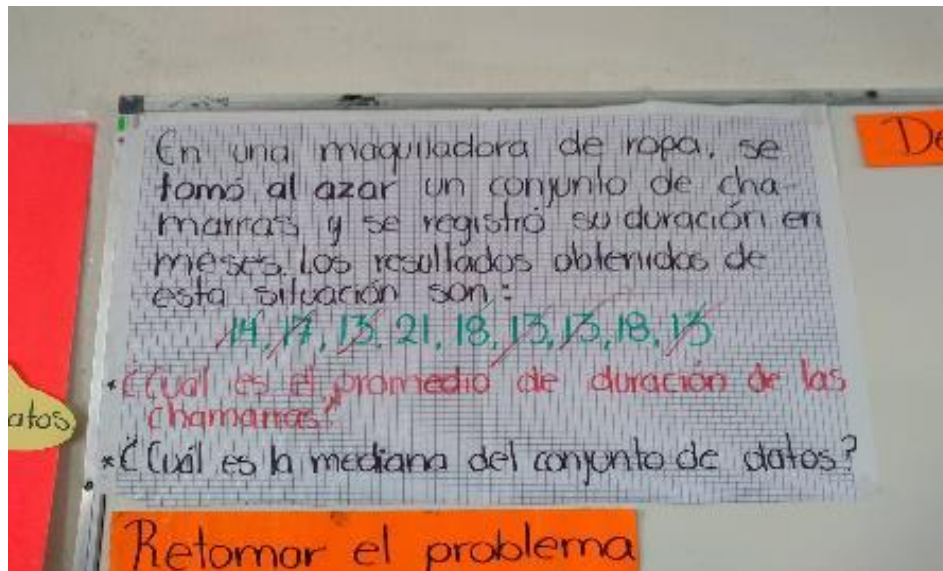 En una maquiladora de ropa, se
tomó al azar un conjunto de cha-
marras y se registró su duración en
meses. Los resultados obtenidos de
esta situación son:
14, 17, 13, 21, 18, 13, 13, 18, 13
* ¿Cuál es el promedio de duración de las
chamarras?
* ¿Cuál es la mediana del conjunto de datos?
Retomar el problema
atos
De